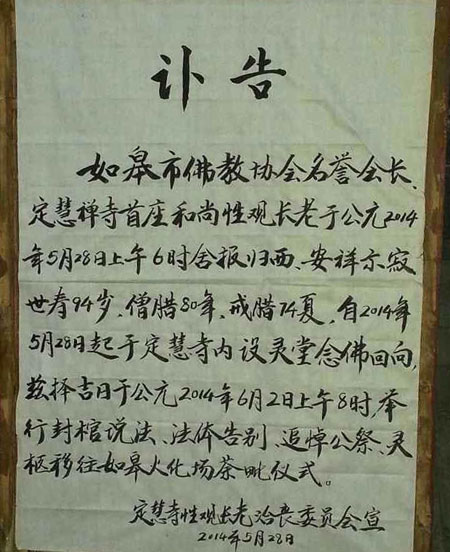 讣告
如皋市佛教协会名誉会长、
定慧禅寺首座和尚性观长老于公元2014
年5月28日上午6时舍报归西、安祥示寂
世寿94岁，僧腊80年，戒腊74夏，自2014年
5月28日起于定慧寺内设灵堂念佛回向，
兹择吉日于公元2014年6月2日上午8时，举
行封棺说法、法体告别、追悼公祭、灵
柩移往如皋火化场荼毗仪式。
定慧寺性观长老治丧委员会宣
2014年5月28日